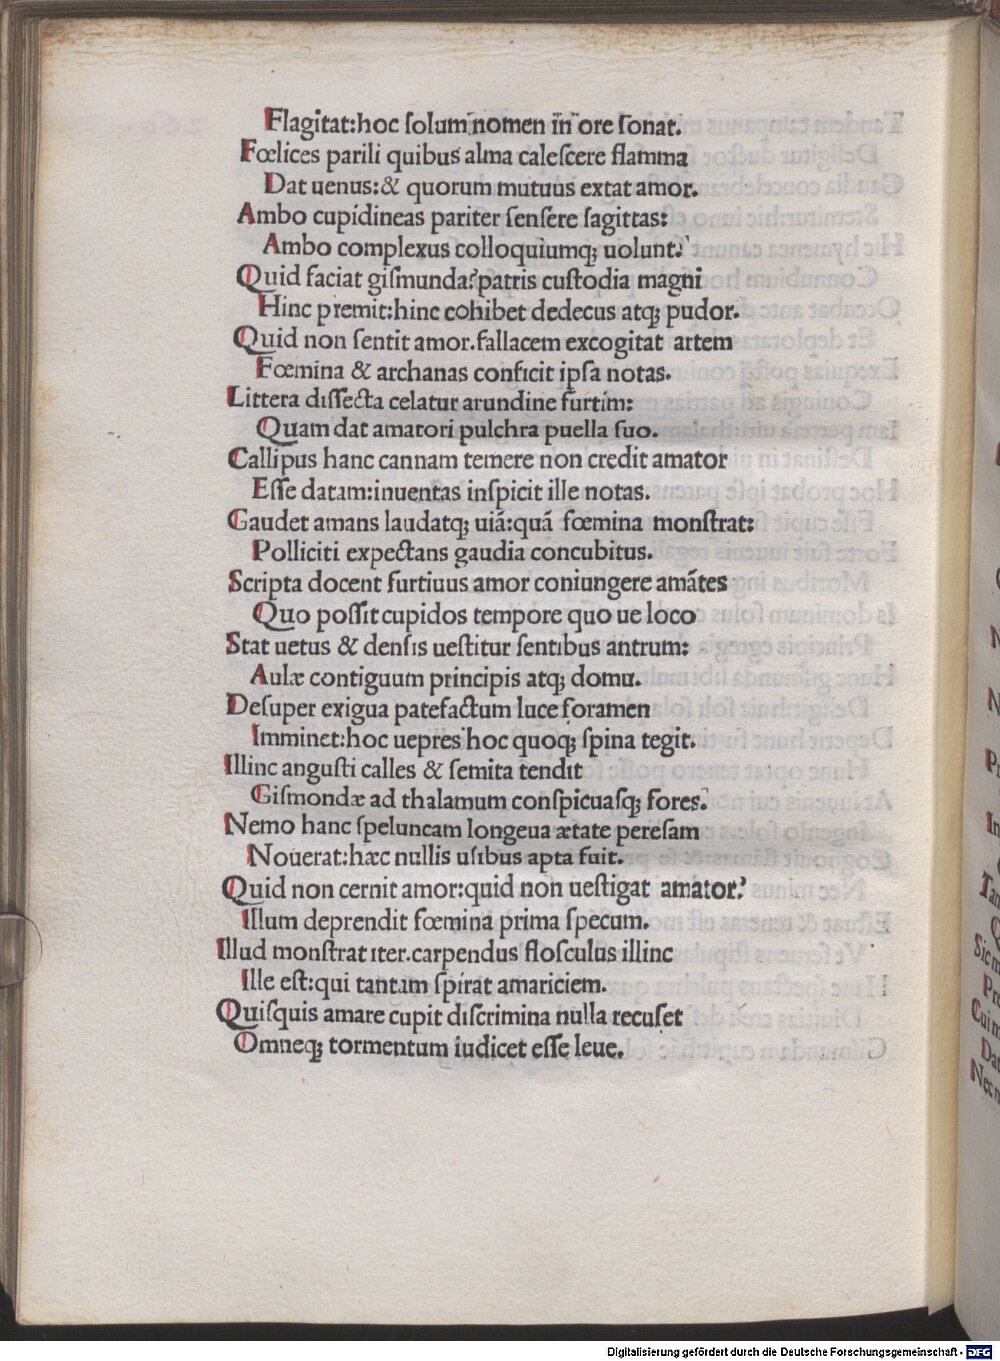 Flagitat:hoc ſolum nomen in ore ſonat.
Fœlices parili quibus alma caleſcere flamma
Dat uenus:& quorum mutuus extat amor.
Ambo cupidineas pariter ſenſere ſagittas:
Ambo complexus colloquiumqꝫ uolunt.
Quid faciat giſmunda?patris cuſtodia magni
Hinc premit:hinc cohibet dedecus atqꝫ pudor.
Quid non ſentit amor.fallacem excogitat artem
Fœmina & archanas conficit ipſa notas.
Littera diſſecta celatur arundine furtim:
Quam dat amatori pulchra puella ſuo.
Callipus hanc cannam temere non credit amator
Eſſe datam:inuentas inſpicit ille notas.
Gaudet amans laudatqꝫ uiā:quā fœmina monſtrat:
Polliciti expectans gaudia concubitus.
Scripta docent furtiuus amor coniungere amātes
Quo poſſit cupidos tempore quo ue loco
Stat uetus & denſis ueſtitur ſentibus antrum:
Aulæ contiguum principis atqꝫ domu.
Deſuper exigua patefactum luce foramen
Imminet:hoc uepres hoc quoqꝫ ſpina tegit.
Illinc anguſti calles & ſemita tendit
Giſmondæ ad thalamum conſpicuaſqꝫ fores.
Nemo hanc ſpeluncam longeua ætate pereſam
Nouerat:hæc nullis uſibus apta fuit.
Quid non cernit amor:quid non ueſtigat amator?
Illum deprendit fœmina prima ſpecum.
Illud monſtrat iter.carpendus floſculus illinc
Ille eſt:qui tantam ſpirat amariciem.
Quiſquis amare cupit diſcrimina nulla recuſet
Omneqꝫ tormentum iudicet eſſe leue.
Digitalisierung gefördert durch die Deutsche Forschungsgemeinschaft - DFG